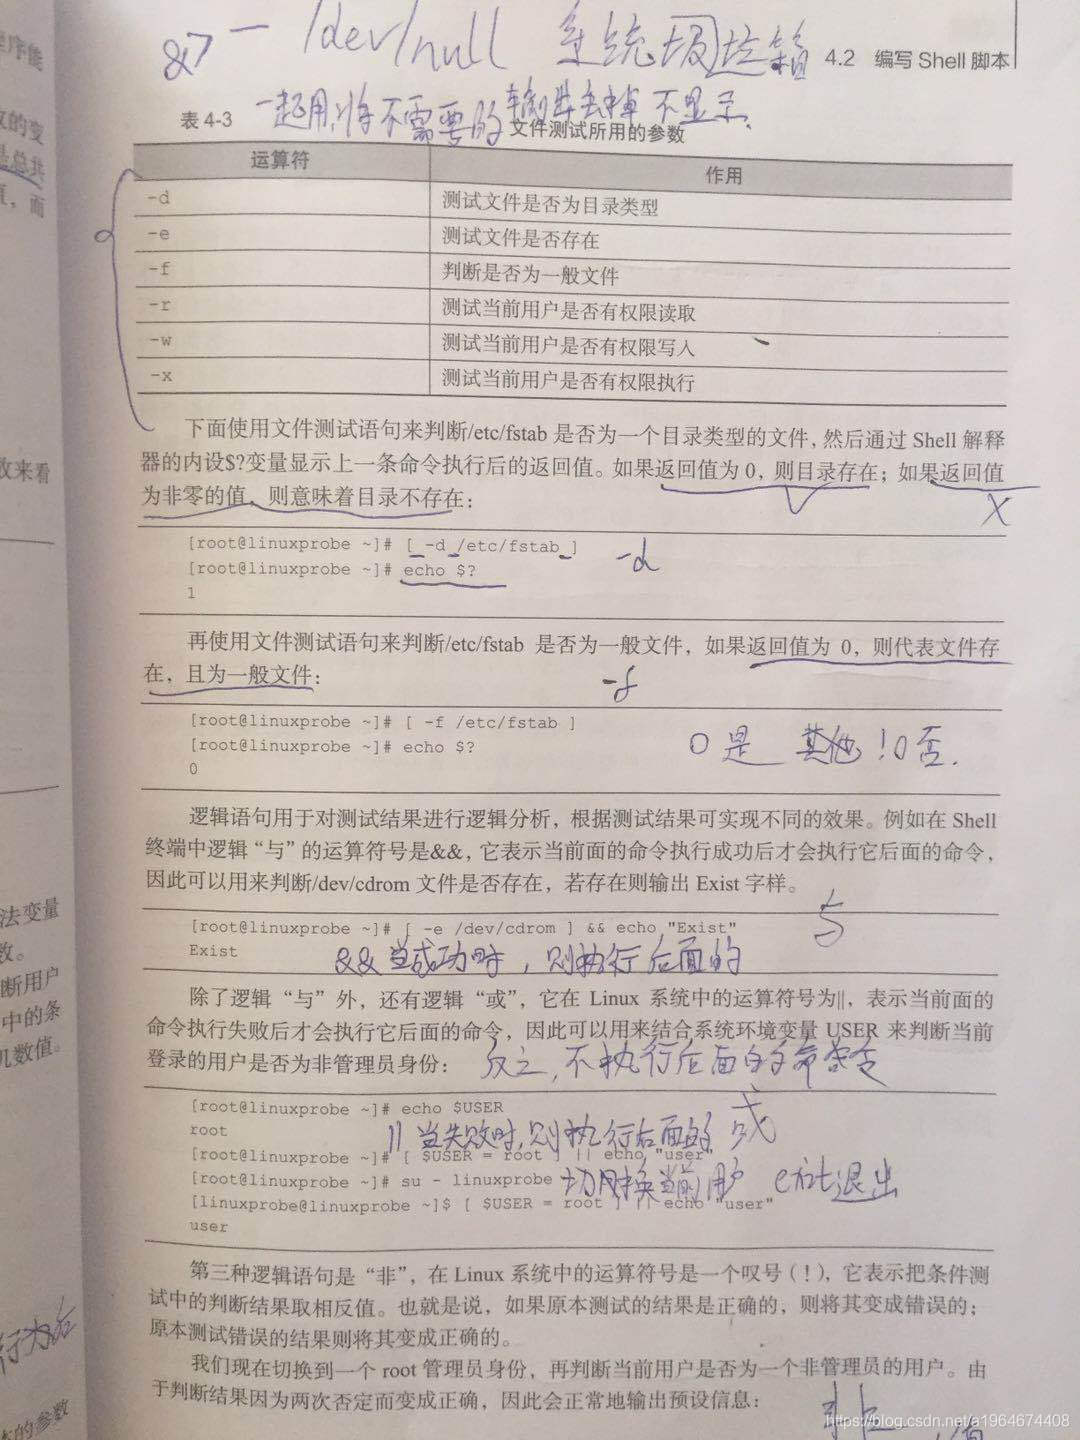 &> — /dev/null 系统垃圾箱
4.2 编写 Shell 脚本
一起用,将不需要的 不显示.
表 4-3 文件测试所用的参数
运算符 作用
-d 测试文件是否为目录类型
-e 测试文件是否存在
-f 判断是否为一般文件
-r 测试当前用户是否有权限读取
-w 测试当前用户是否有权限写入
-x 测试当前用户是否有权限执行
下面使用文件测试语句来判断/etc/fstab 是否为一个目录类型的文件，然后通过 Shell 解释
器的内设$?变量显示上一条命令执行后的返回值。如果返回值为 0，则目录存在；如果返回值
为非零的值，则意味着目录不存在：
[root@linuxprobe ~]# [ -d /etc/fstab ]
-d
[root@linuxprobe ~]# echo $?
1
再使用文件测试语句来判断/etc/fstab 是否为一般文件，如果返回值为 0，则代表文件存
在，且为一般文件：
-f
[root@linuxprobe ~]# [ -f /etc/fstab ]
[root@linuxprobe ~]# echo $?
0 是 其他!0 否.
0
逻辑语句用于对测试结果进行逻辑分析，根据测试结果可实现不同的效果。例如在 Shell
终端中逻辑“与”的运算符号是&&，它表示当前面的命令执行成功后才会执行它后面的命令，
因此可以用来判断/dev/cdrom 文件是否存在，若存在则输出 Exist 字样。
与
[root@linuxprobe ~]# [ -e /dev/cdrom ] && echo "Exist"
Exist
&& 当成功时，则执行后面的
除了逻辑“与”外，还有逻辑“或”，它在 Linux 系统中的运算符号为||，表示当前面的
命令执行失败后才会执行它后面的命令，因此可以用来结合系统环境变量 USER 来判断当前
登录的用户是否为非管理员身份：
反之,不执行后面的命令
[root@linuxprobe ~]# echo $USER
root
|| 当失败时,则执行后面的 或
[root@linuxprobe ~]# [ $USER = root ] || echo "user"
[root@linuxprobe ~]# su - linuxprobe
切换当前用户 exit退出
[linuxprobe@linuxprobe ~]$ [ $USER = root ] || echo "user"
user
第三种逻辑语句是“非”，在 Linux 系统中的运算符号是一个叹号（!），它表示把条件测
试中的判断结果取相反值。也就是说，如果原本测试的结果是正确的，则将其变成错误的；
原本测试错误的结果则将其变成正确的。
我们现在切换到一个 root 管理员身份，再判断当前用户是否为一个非管理员的用户。由
于判断结果因为两次否定而变成正确，因此会正常地输出预设信息：
非
序能
的变
总共
而
收来看
法变量
数。
断用户
中的条
几数值。
行为后
的参数
https://blog.csdn.net/a1964674408